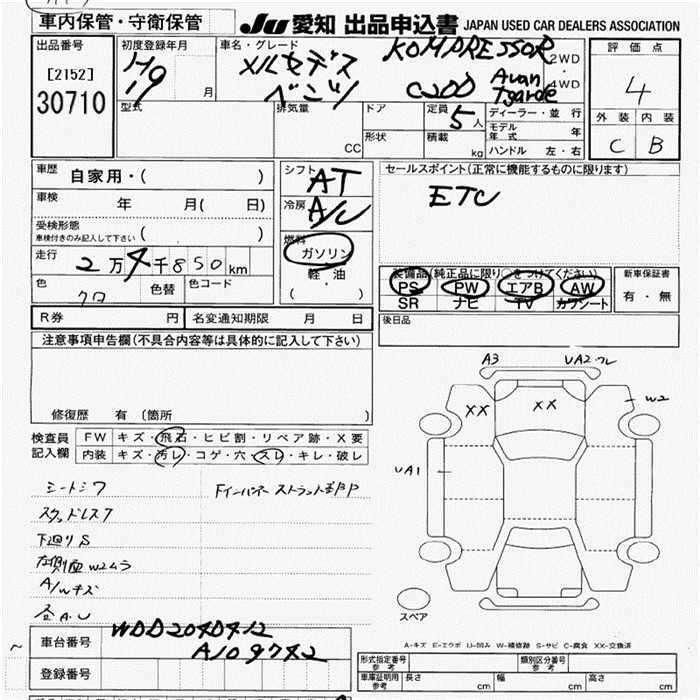 車内保管・守衛保管
JU 愛知 出品申込書 JAPAN USED CAR DEALERS ASSOCIATION
出品番号
[2152]
30710
初度登録年月
H19
月
車名・グレード
メルセデス
ベンツ
KOMPRESSOR
C200
Avan
Tgarde
2WD
・
4WD
評価点
4
外装 内装
C B
型式
排気量
CC
ドア
形状
定員
5人
積載
kg
ディーラー・並行
モデル年式 年
ハンドル 左・右
車歴
自家用・( )
車検
年 月( 日)
受検形態
車検付きのみ記入して下さい ( )
走行
2万4千850km
色
クロ
色替
色コード
シフト
AT
冷房
A/C
燃料
ガソリン
・
軽・油
( )
セールスポイント(正常に機能するものに限ります)
ETC
装備品(純正品に限り○をつけてください)
PS PW エアB AW
SR ナビ TV カワシート
新車保証書
有・無
R券 円
名変通知期限 月 日
後日品
注意事項申告欄(不具合内容等は具体的に記入して下さい)
修復歴 有 (箇所
検査員
記入欄
FW キズ・飛石・ヒビ割・リペア跡・X要
内装 キズ・汚レ・コゲ・穴・スレ・キレ・破レ
シートシワ
スタッドレス7
下廻りS
左側面W2ムラ
A/Wキズ
全A.U
A3
UA2
XX
XX
W2
UA1
スペア
A-キズ E-エクボ U-凹み W-補修跡 S-サビ C-腐食 XX-交換済
車台番号
WDD2040412
A109742
登録番号
形式指定番号
参考
類別区分番号
参考
車庫証明用
参考
長さ cm
幅 cm
高さ cm